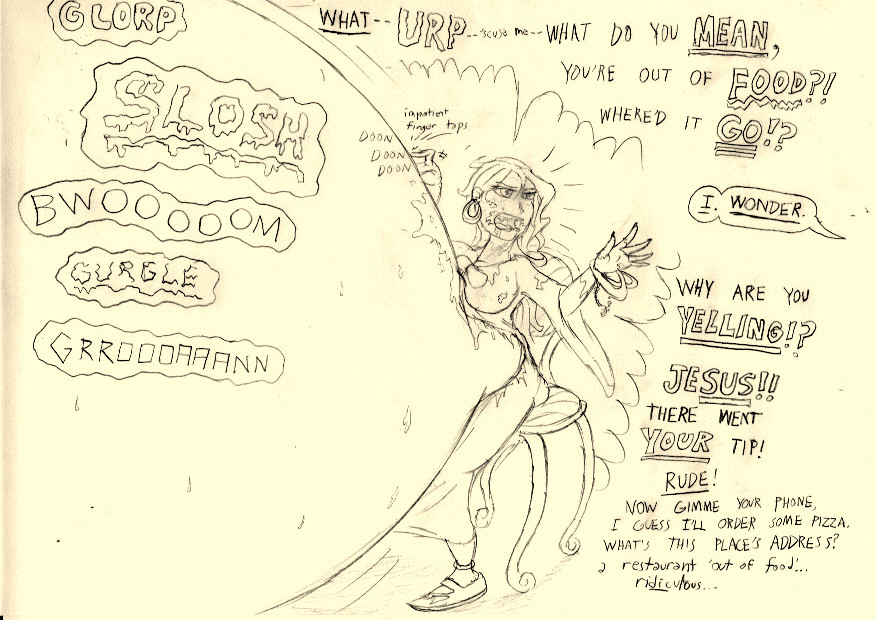 GLORP
SLOSH
BWOOOOOM
GURGLE
GRROOOAAANN
WHAT-- URP--'scuse me--WHAT DO YOU MEAN,
YOU'RE OUT OF FOOD?!
WHERED IT GO!?
impatient
finger taps
DOON
DOON
DOON
I. WONDER.
WHY ARE YOU
YELLING!?
JESUS!!
THERE WENT
YOUR TIP!
RUDE!
NOW GIMME YOUR PHONE,
I GUESS I'LL ORDER SOME PIZZA.
WHAT'S THIS PLACE'S ADDRESS?
a restaurant 'out of food'...
ridiculous...